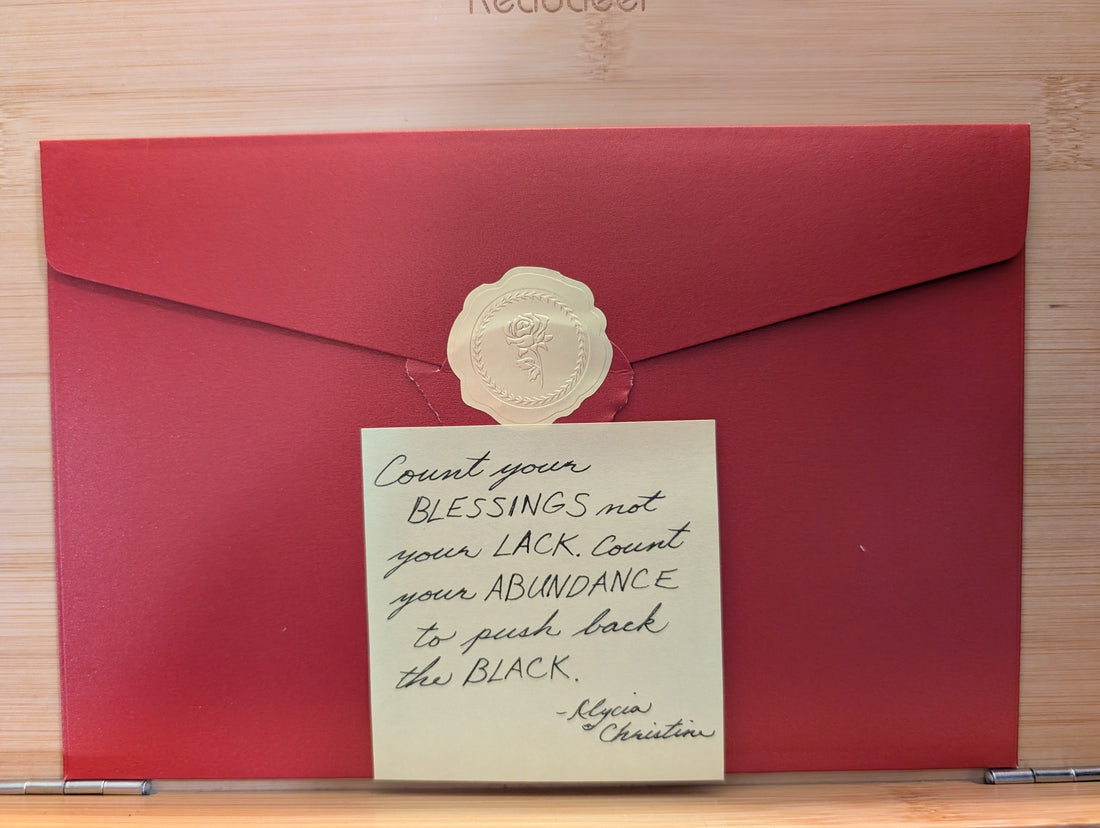 Readodeer
Count your
BLESSINGS not
your LACK. Count
your ABUNDANCE
to push back
the BLACK.
-Alycia
Christine